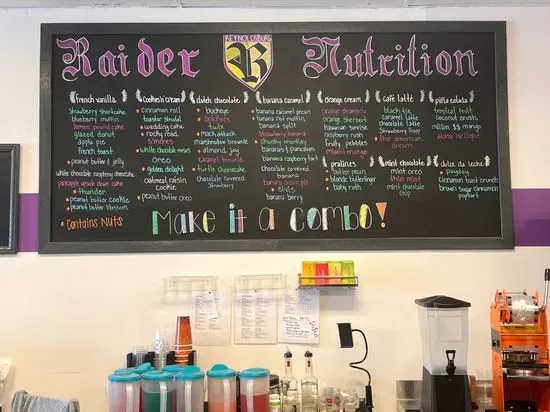 Raider
REYNOLDSBURG
R
Nutrition
french vanilla
Strawberry shortcake
blueberry muffin
lemon pound cake
glazed donut
apple pie
french toast
peanut butter & jelly
white chocolate raspberry cheesecake
pineapple upside down cake
thunder
peanut butter cookie
peanut butter blossom
Contains Nuts
Cookies n' cream
cinnamon roll
toaster strudel
wedding cake
rocky road
s'mores
white chocolate mocha
oreo
golden delight
oatmeal raisin
cookie
peanut butter oreo
dutch chocolate
buckeye
snickers
twix
mack attack
marshmallow brownie
almond joy
caramel brownie
thin mint
turtle cheesecake
chocolate covered
Strawberry
banana caramel
banana cream pecan
banana nut muffin
banana split
Strawberry banana
chunky monkey
bananas f pancakes
banana raspberry tart
chocolate covered
banana
banana cream pie
elvis
banana berry
orange cream
orange dreamsicle
orange sherbert
hawaiian sunrise
raspberry rush
fruity pebbles
miami mango
pralines
butter pecan
blondie butterfinger
baby ruth
café latté
black tie
caramel latte
chocolate latte
Strawberry frapp
the american
dream
mint chocolate
mint oreo
thin mint
mint chocolate
chip
piña colada
tropical fruit
coconut crush
million $$ mango
aloha delight
dulce de leche
payday
cinnamon toast crunch
brown sugar cinnamon
poptart
Make it a combo!